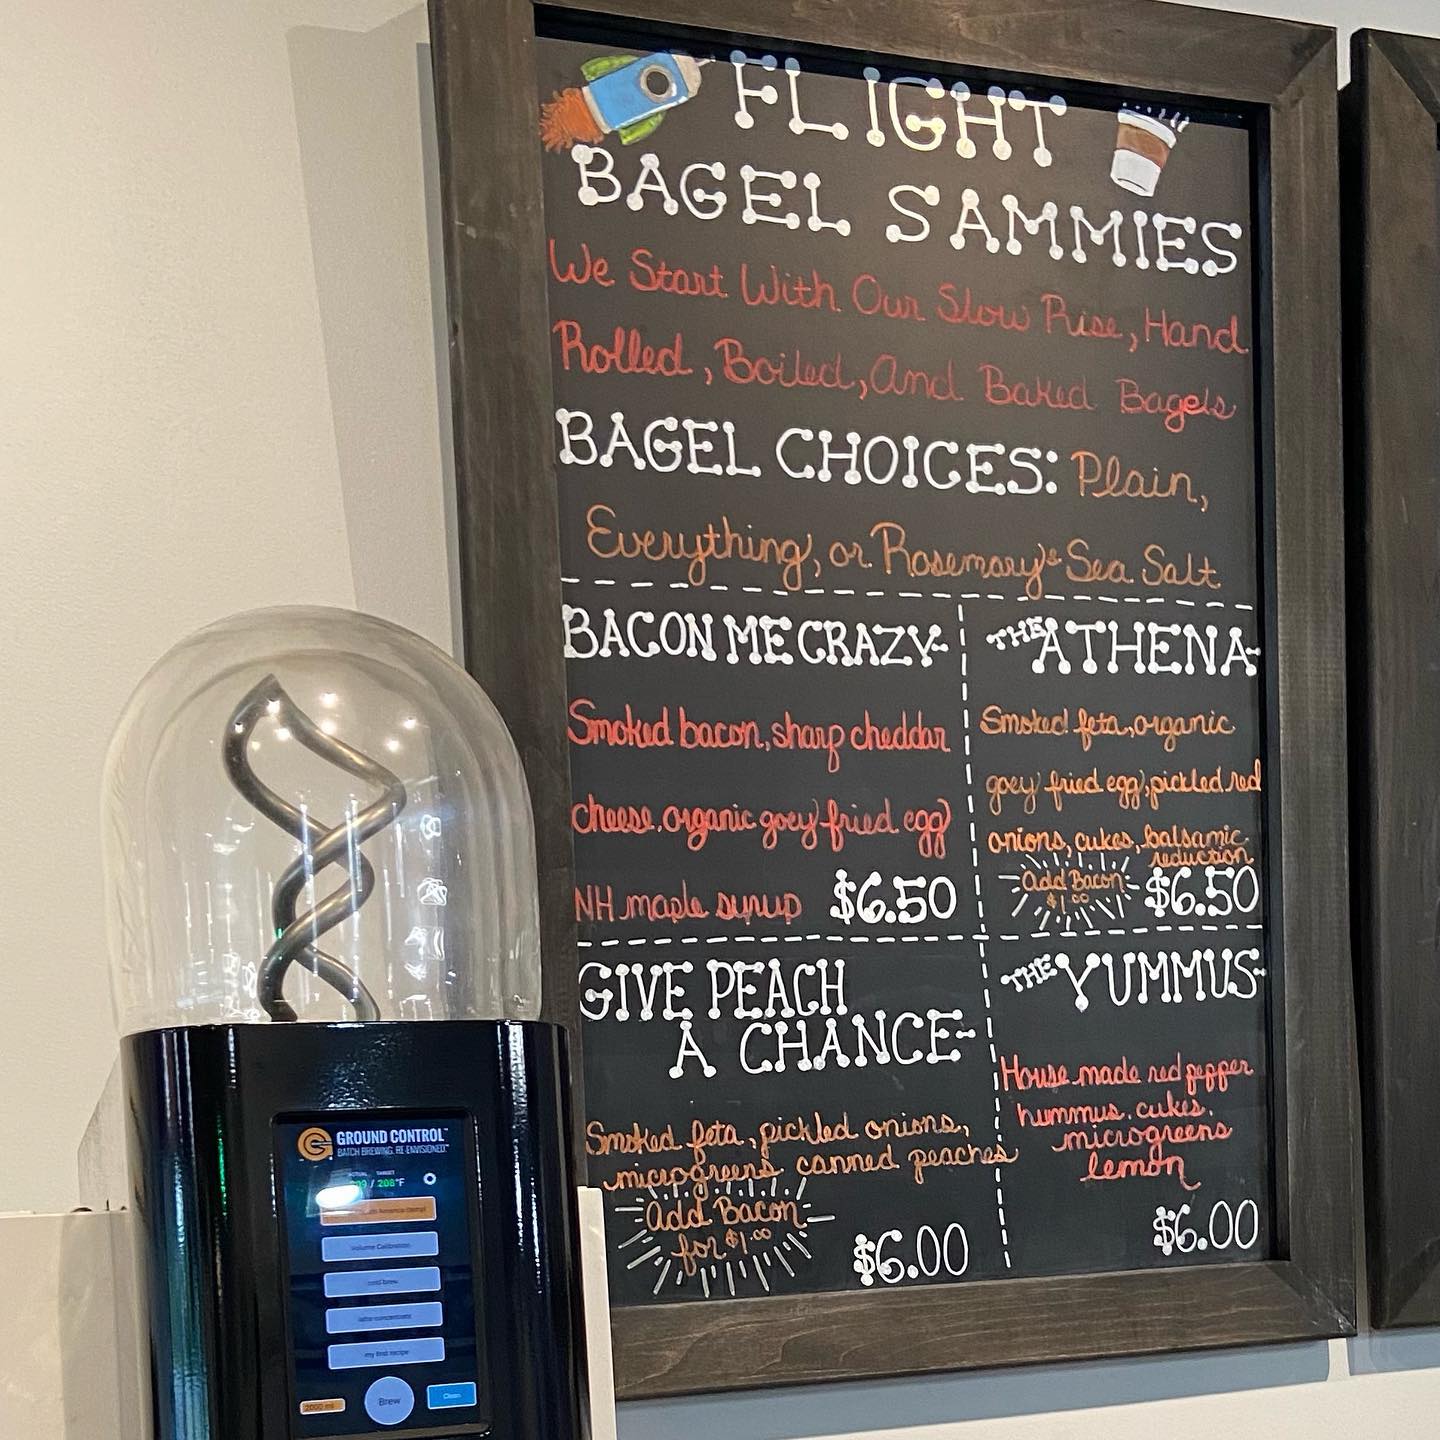 FLIGHT
BAGEL SAMMIES
We Start With Our Slow Rise, Hand
Rolled, Boiled, And Baked Bagels
BAGEL CHOICES: Plain,
Everything, or Rosemary & Sea Salt
BACON ME CRAZY-
Smoked bacon, sharp cheddar
cheese, organic gooey fried egg
NH maple syrup $6.50
THE ATHENA-
Smoked feta, organic
goey fried egg, pickled red
onions, cukes, balsamic
reduction
Add Bacon
$1.00
$6.50
GIVE PEACH
A CHANCE-
Smoked feta, pickled onions,
microgreens canned peaches
Add Bacon
for $1.00
$6.00
THE YUMMUS-
House made red pepper
hummus, cukes,
microgreens
lemon
$6.00
GROUND CONTROL™
BATCH BREWING. RE-ENVISIONED.™
ACTUAL TARGET
/ 208°F
America (temp)
Volume Calibration
cold brew
latte concentrate
my first recipe
2000 ml
Brew
Clean